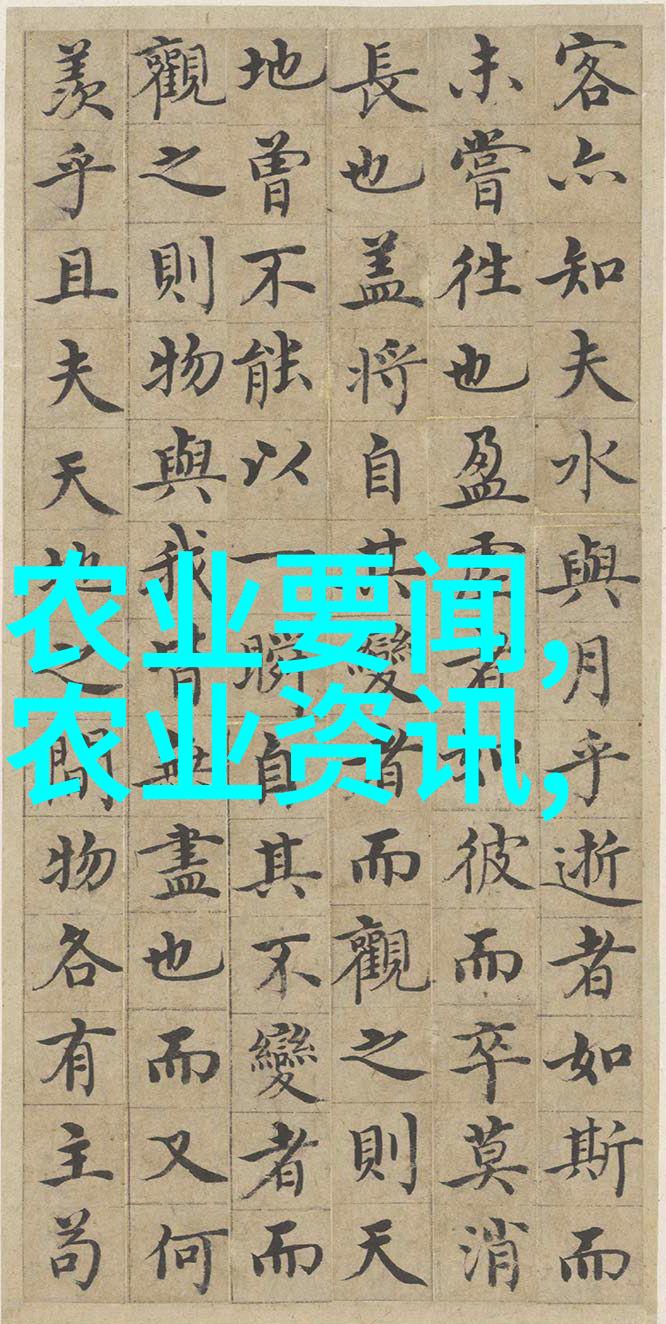 客亦知夫水與月乎逝者如斯而
未嘗往也盈虛者如彼而卒莫消
長也盖將自其變者而觀之則天
地曾不能以一瞬自其不變者而
觀之則物與我皆無盡也而又何
羨乎且夫天地之間物各有主苟
农业要闻,
农业资讯,